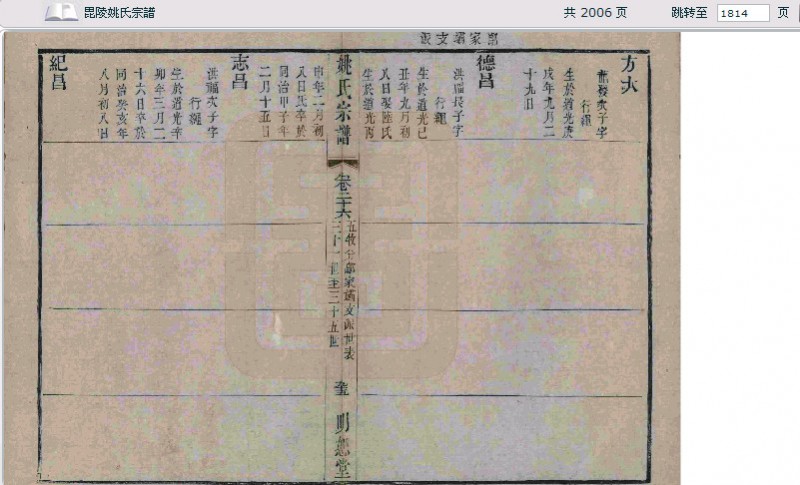 毘陵姚氏宗譜
共 2006 页
跳转至 1814 页
方大
龍發次子字
行 
生於道光庚
戌年九月二
十九日
德昌
洪福長子字
行 
生於道光己
丑年九月初
八日娶陸氏
生於道光丙
姚氏宗譜
卷二十六
三十一世至三十五世
明恕堂
申年二月初
八日氏卒於
同治甲子年
二月十五日
志昌
洪福次子字
行 
生於道光辛
卯年三月二
十六日卒於
同治癸亥年
八月初八日
紀昌